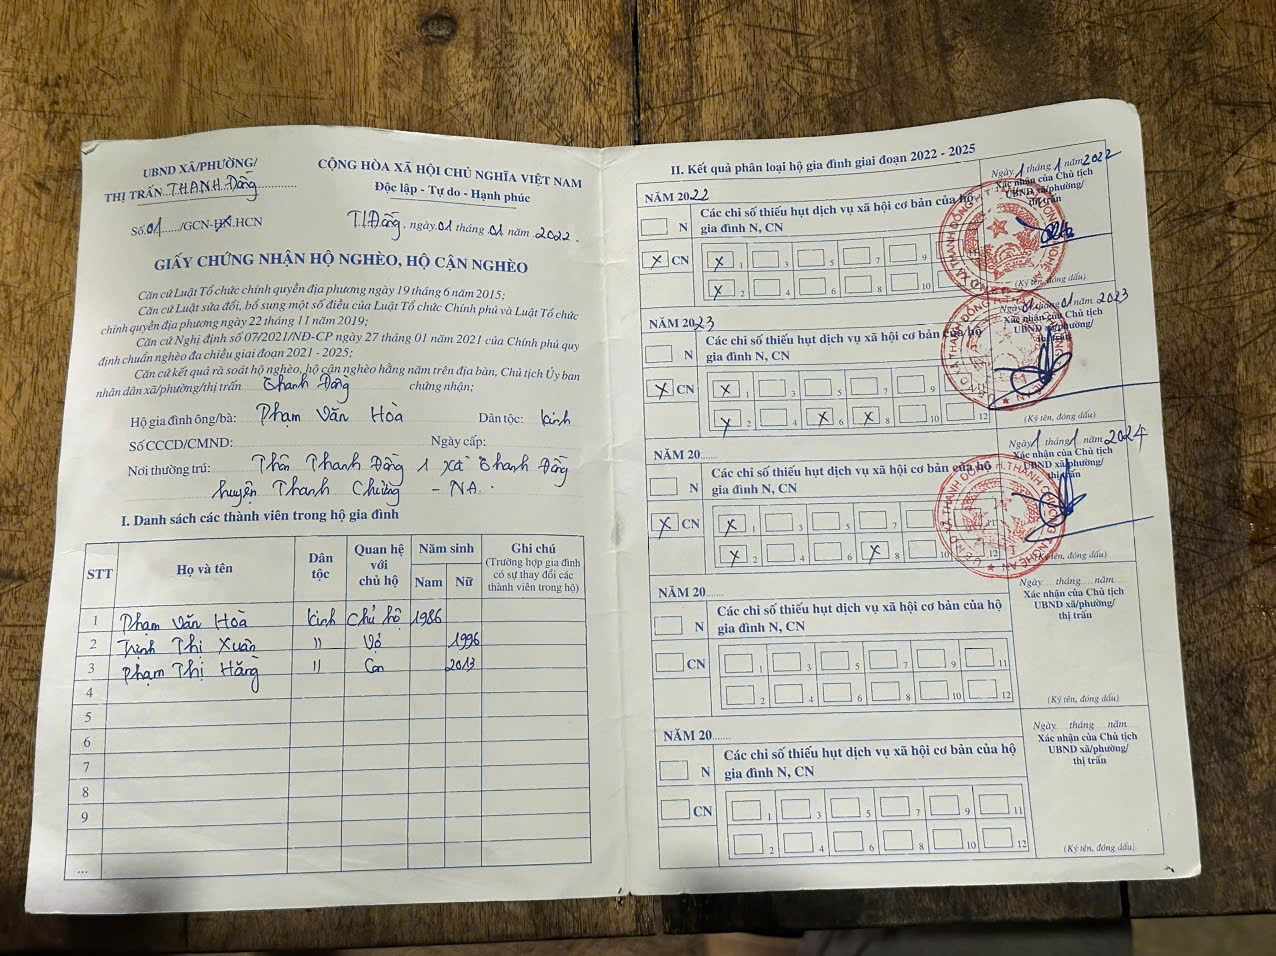 UBND XÃ/PHƯỜNG/
THỊ TRẤN THANH Đồng
CỘNG HÒA XÃ HỘI CHỦ NGHĨA VIỆT NAM
Độc lập - Tự do - Hạnh phúc
Số: 01 /GCN-HN.HCN
T.Đồng, ngày 01 tháng 01 năm 2022.
GIẤY CHỨNG NHẬN HỘ NGHÈO, HỘ CẬN NGHÈO
Căn cứ Luật Tổ chức chính quyền địa phương ngày 19 tháng 6 năm 2015;
Căn cứ Luật sửa đổi, bổ sung một số điều của Luật Tổ chức Chính phủ và Luật Tổ chức
chính quyền địa phương ngày 22 tháng 11 năm 2019;
Căn cứ Nghị định số 07/2021/NĐ-CP ngày 27 tháng 01 năm 2021 của Chính phủ quy
định chuẩn nghèo đa chiều giai đoạn 2021 - 2025;
Căn cứ kết quả rà soát hộ nghèo, hộ cận nghèo hằng năm trên địa bàn, Chủ tịch Ủy ban
nhân dân xã/phường/thị trấn Thanh Đồng chứng nhận;
Hộ gia đình ông/bà: Phạm Văn Hòa Dân tộc: Kinh
Số CCCD/CMND: Ngày cấp:
Nơi thường trú: Thôn Thanh Đồng 1 xã Thanh Đồng
huyện Thanh Chương - NA.
I. Danh sách các thành viên trong hộ gia đình
STT Họ và tên Dân tộc Quan hệ với chủ hộ Năm sinh Nam Nữ Ghi chú (Trường hợp gia đình có sự thay đổi các thành viên trong hộ)
1 Phạm Văn Hòa Kinh Chủ hộ 1986
2 Trình Thị Xuân " Vợ 1996
3 Phạm Thị Hằng " Con 2013
4
5
6
7
8
9
...
II. Kết quả phân loại hộ gia đình giai đoạn 2022 - 2025
NĂM 2022
N
x CN
Các chỉ số thiếu hụt dịch vụ xã hội cơ bản của hộ
gia đình N, CN
x 1 3 5 7 9
x 2 4 6 8 10
Ngày 1 tháng 1 năm 2022
Xác nhận của Chủ tịch
UBND xã/phường/
thị trấn
(Ký tên, đóng dấu)
NĂM 2023
N
x CN
Các chỉ số thiếu hụt dịch vụ xã hội cơ bản của hộ
gia đình N, CN
x 1 3 5 7 9 11
x 2 4 x 6 x 8 10 12
Ngày 01 tháng 01 năm 2023
Xác nhận của Chủ tịch
UBND xã/phường/
thị trấn
(Ký tên, đóng dấu)
NĂM 20......
N
x CN
Các chỉ số thiếu hụt dịch vụ xã hội cơ bản của hộ
gia đình N, CN
x 1 3 5 7 11
x 2 4 6 x 8 10 12
Ngày 1 tháng 1 năm 2024
Xác nhận của Chủ tịch
UBND xã/phường/
thị trấn
(Ký tên, đóng dấu)
NĂM 20......
N
CN
Các chỉ số thiếu hụt dịch vụ xã hội cơ bản của hộ
gia đình N, CN
1 3 5 7 9 11
2 4 6 8 10 12
Ngày tháng năm
Xác nhận của Chủ tịch
UBND xã/phường/
thị trấn
(Ký tên, đóng dấu)
NĂM 20......
N
CN
Các chỉ số thiếu hụt dịch vụ xã hội cơ bản của hộ
gia đình N, CN
1 3 5 7 9 11
2 4 6 8 10 12
Ngày tháng năm
Xác nhận của Chủ tịch
UBND xã/phường/
thị trấn
(Ký tên, đóng dấu)